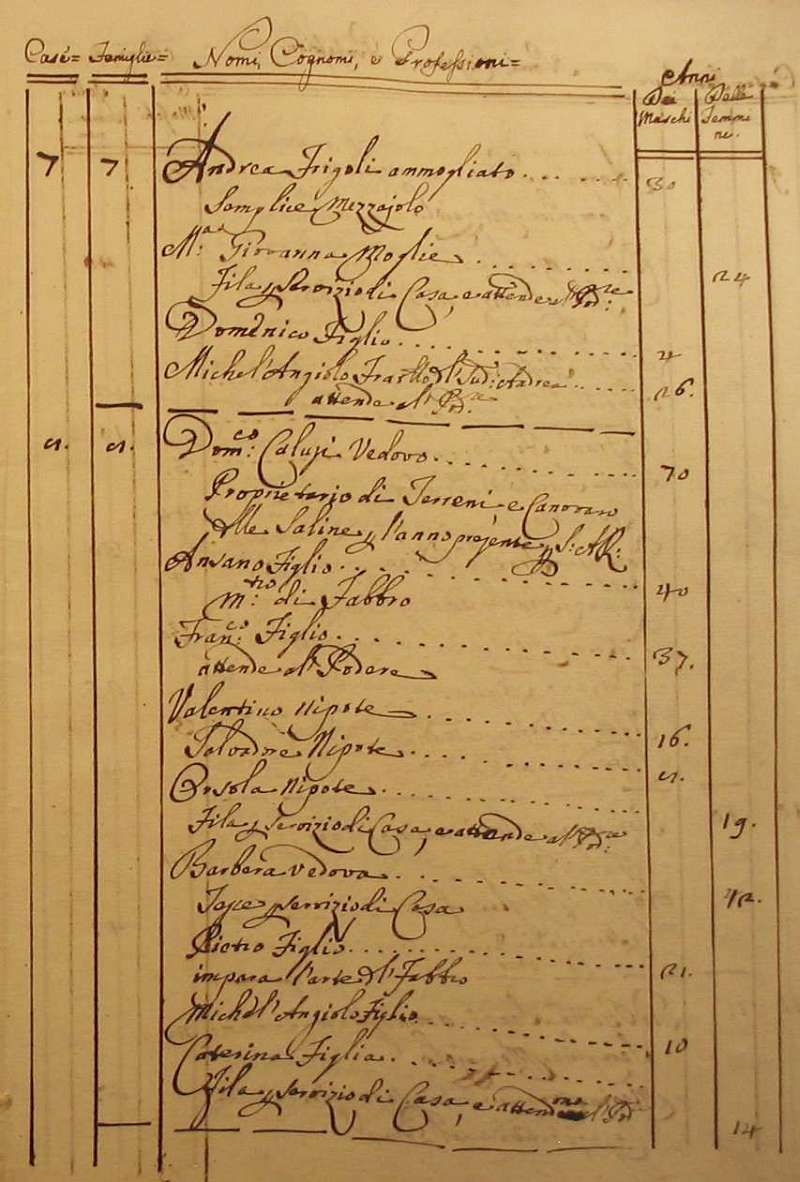 Case= Famiglie= Nomi, Cognomi, e Professioni= Anni
Dei Maschi Delle Femmine.
7 7 Andrea Frigoli ammogliato 30
Semplice Mezzajolo
M.ª Giovanna Moglie
Fila p servizio di Casa, e attende al Pod:re 24
Domenico Figlio
Michel'Angiolo Fratto d'l Sud: Andrea 26.
attende al Pod.re
Dom:co Vedovo 70
Proprietario di Terreni e Canovaro
delle Saline p l'anno presente p S: A R:
Ansano Figlio 40
M:tro di Fabbro
Fran:co Figlio 37.
attende al Podere
Valentino Nipote 16.
Salvadore Nipote
Orsola Nipote
Fila p servizio di Casa, e attende al Pod:re 19.
Barbera Vedova
Tesse p servizio di Casa 42.
Pietro Figlio
impara l'arte d'l Fabbro 21.
Michel'Angiolo Figlio 10
Caterina Figlia
Fila p servizio di Casa, e attende al Pod:re 14